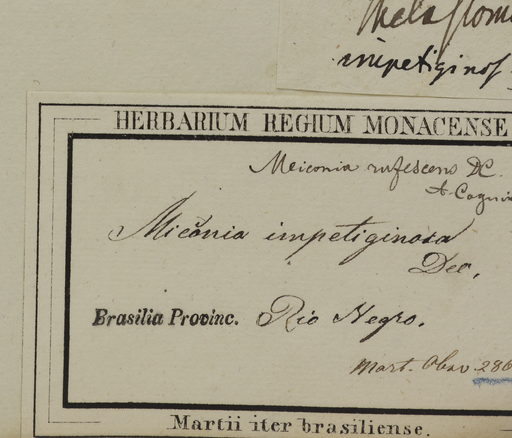 Melastoma
impetiginos
HERBARIUM REGIUM MONACENSE
Meiconia rufescens DC.
A. Cogniau
Micõnia impetiginosa
Dec.
Brasilia Provinc. Rio Negro.
Mart. Obsv. 286
Martii iter brasiliense.